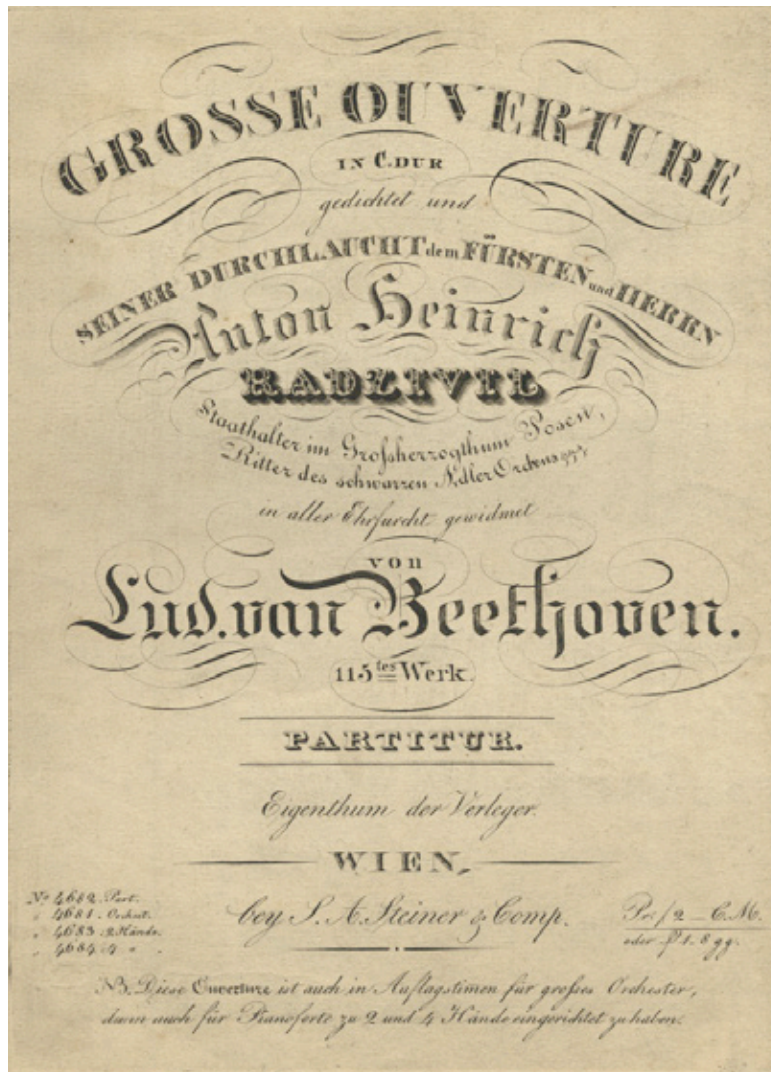 GROSSE OUVERTURE
IN C. DUR
gedichtet und
SEINER DURCHLAUCHT dem FÜRSTEN und HERRN
Anton Heinrich
RADZIVIL
Staathalter im Großherzogthum Posen,
Ritter des schwarzen Adler Ordens
in aller Ehrfurcht gewidmet
von
Lud. van Beethoven.
115tes Werk.
PARTITUR.
Eigenthum der Verleger.
WIEN,
bey S. A. Steiner & Comp.
No 4682. Part.
" 4681. Orchest.
" 4683. 2 Hände.
" 4684. 4 " .
Pr: f 2 _ C. M.
oder 1. 8 gg.
NB. Diese Ouverture ist auch in Auflagstimen für großes Orchester,
dann auch für Pianoforte zu 2 und 4 Hände eingerichtet zu haben.